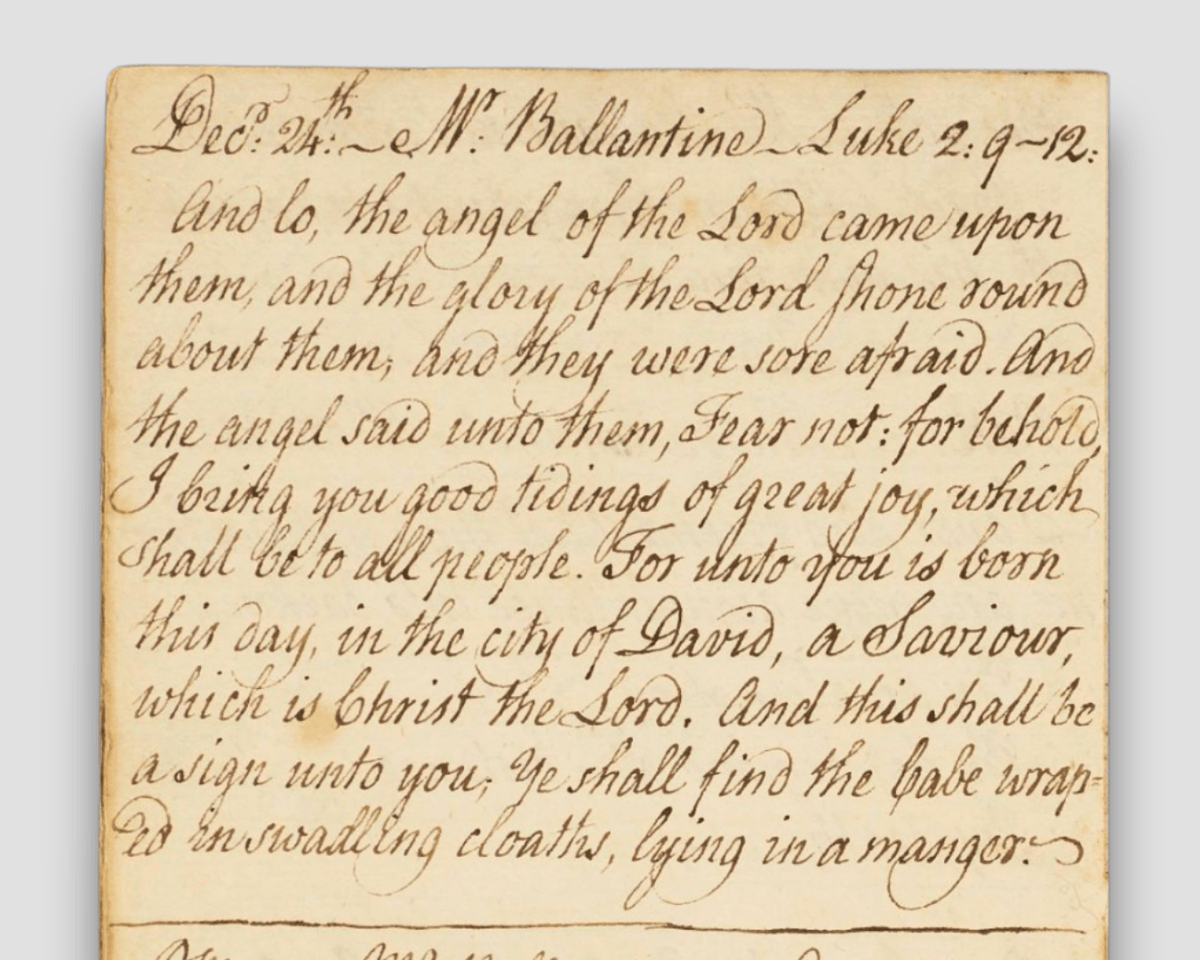 Decr: 24th: ~ Mr: Ballantine ~ Luke 2: 9~12:
And lo, the angel of the Lord came upon
them, and the glory of the Lord shone round
about them; and they were sore afraid. And
the angel said unto them, Fear not: for behold,
I bring you good tidings of great joy, which
shall be to all people. For unto you is born
this day, in the city of David, a Saviour,
which is Christ the Lord. And this shall be
a sign unto you; Ye shall find the babe wrap=
ed in swadling cloaths, lying in a manger:~